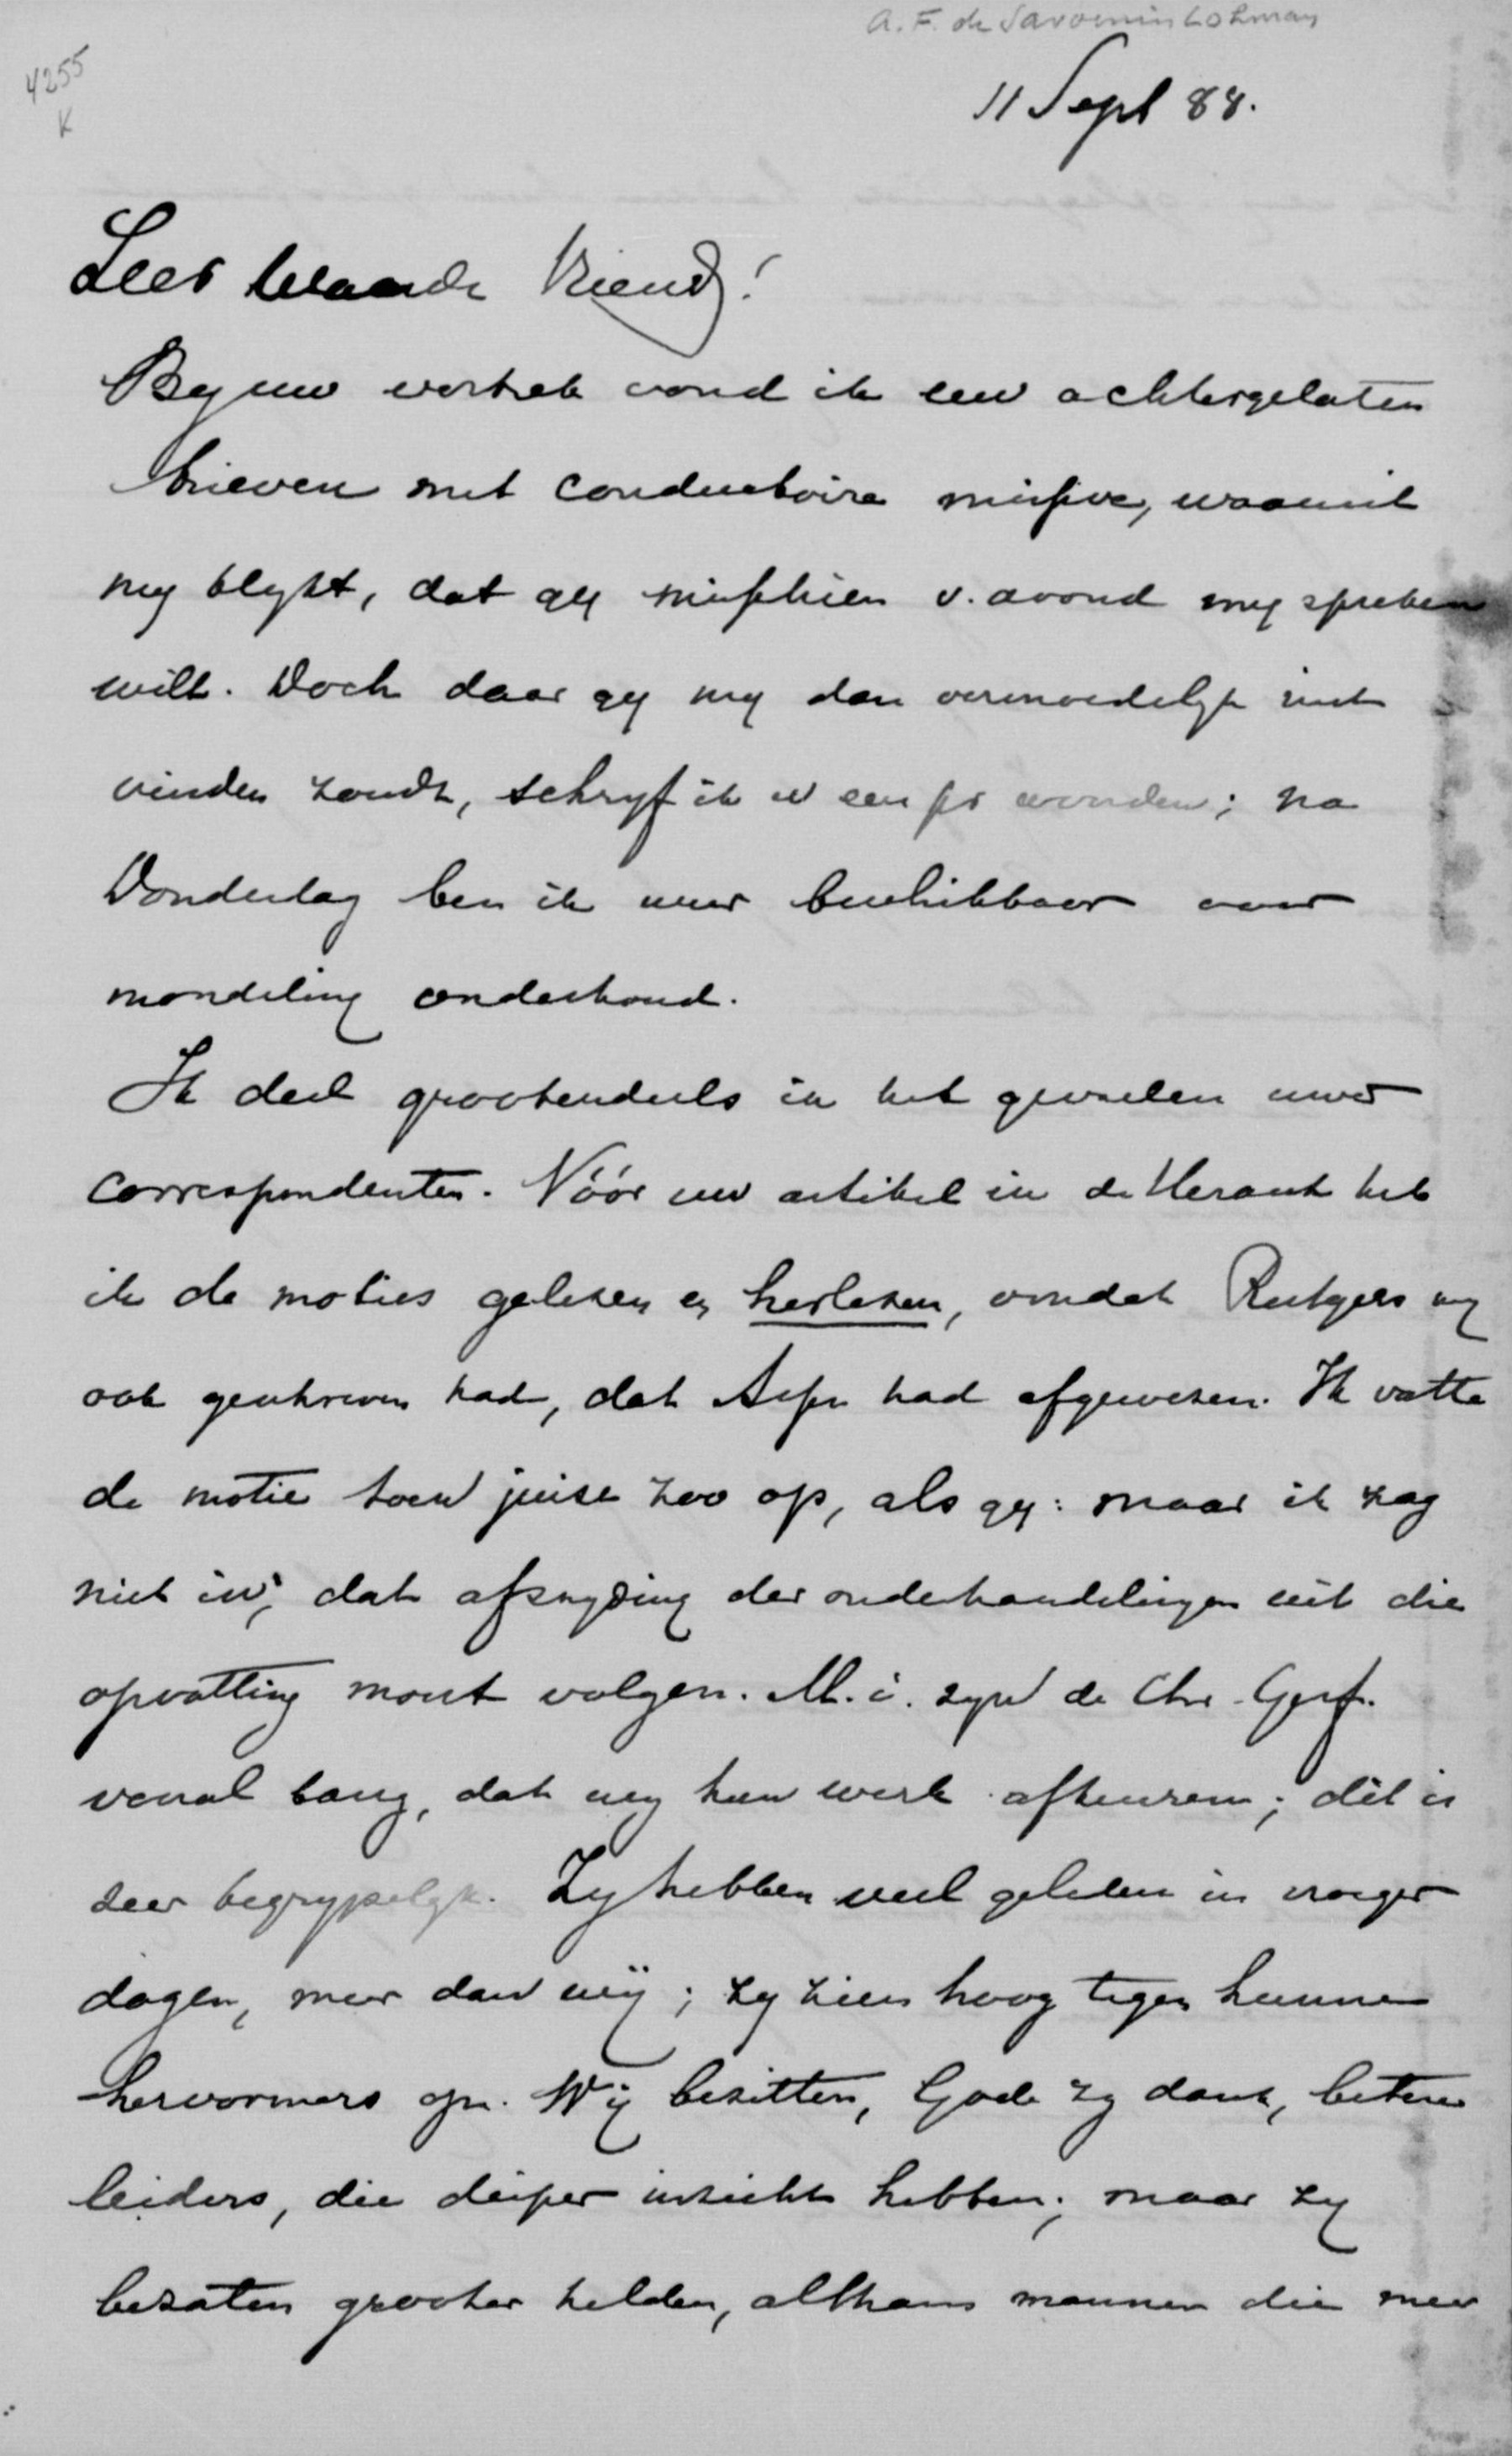 A.F. de Savornin Lohman
4255
K
11 Sept 88.
Zeer Waarde Vriend!
By uw vertrek vond ik uw achtergelaten
brieven met conductoire missive, waaruit
my blykt, dat gy misschien v. avond my spreken
wilt. Doch daar gy my dan vermoedelyk niet
vinden zoudt, schryf ik u een pr woorden; na
Donderdag ben ik weer beschikbaar voor
mondeling onderhoud.
Ik deel grootendeels in het gevoelen uwer
correspondenten. Vóór uw artikel in de Heraut heb
ik de moties gelezen en herlezen, omdat Rutgers my
ook geschreven had, dat Assen had afgewezen. Ik vatte
de motie toen juist zoo op, als gy: maar ik zag
niet in, dat afsnyding der onderhandelingen uit die
opvatting moest volgen. M.i. zyn de Chr. Geref.
vooral bang, dat wy hun werk afkeuren; dit is
zeer begrypelyk. Zy hebben veel geleden in vroeger
dagen, meer dan wij; zy zien hoog tegen hunne
hervormers op. Wij bezitten, Gode zy dank, betere
leiders, die dieper inzicht hebben; maar zy
bezaten grooter helden, althans mannen die meer